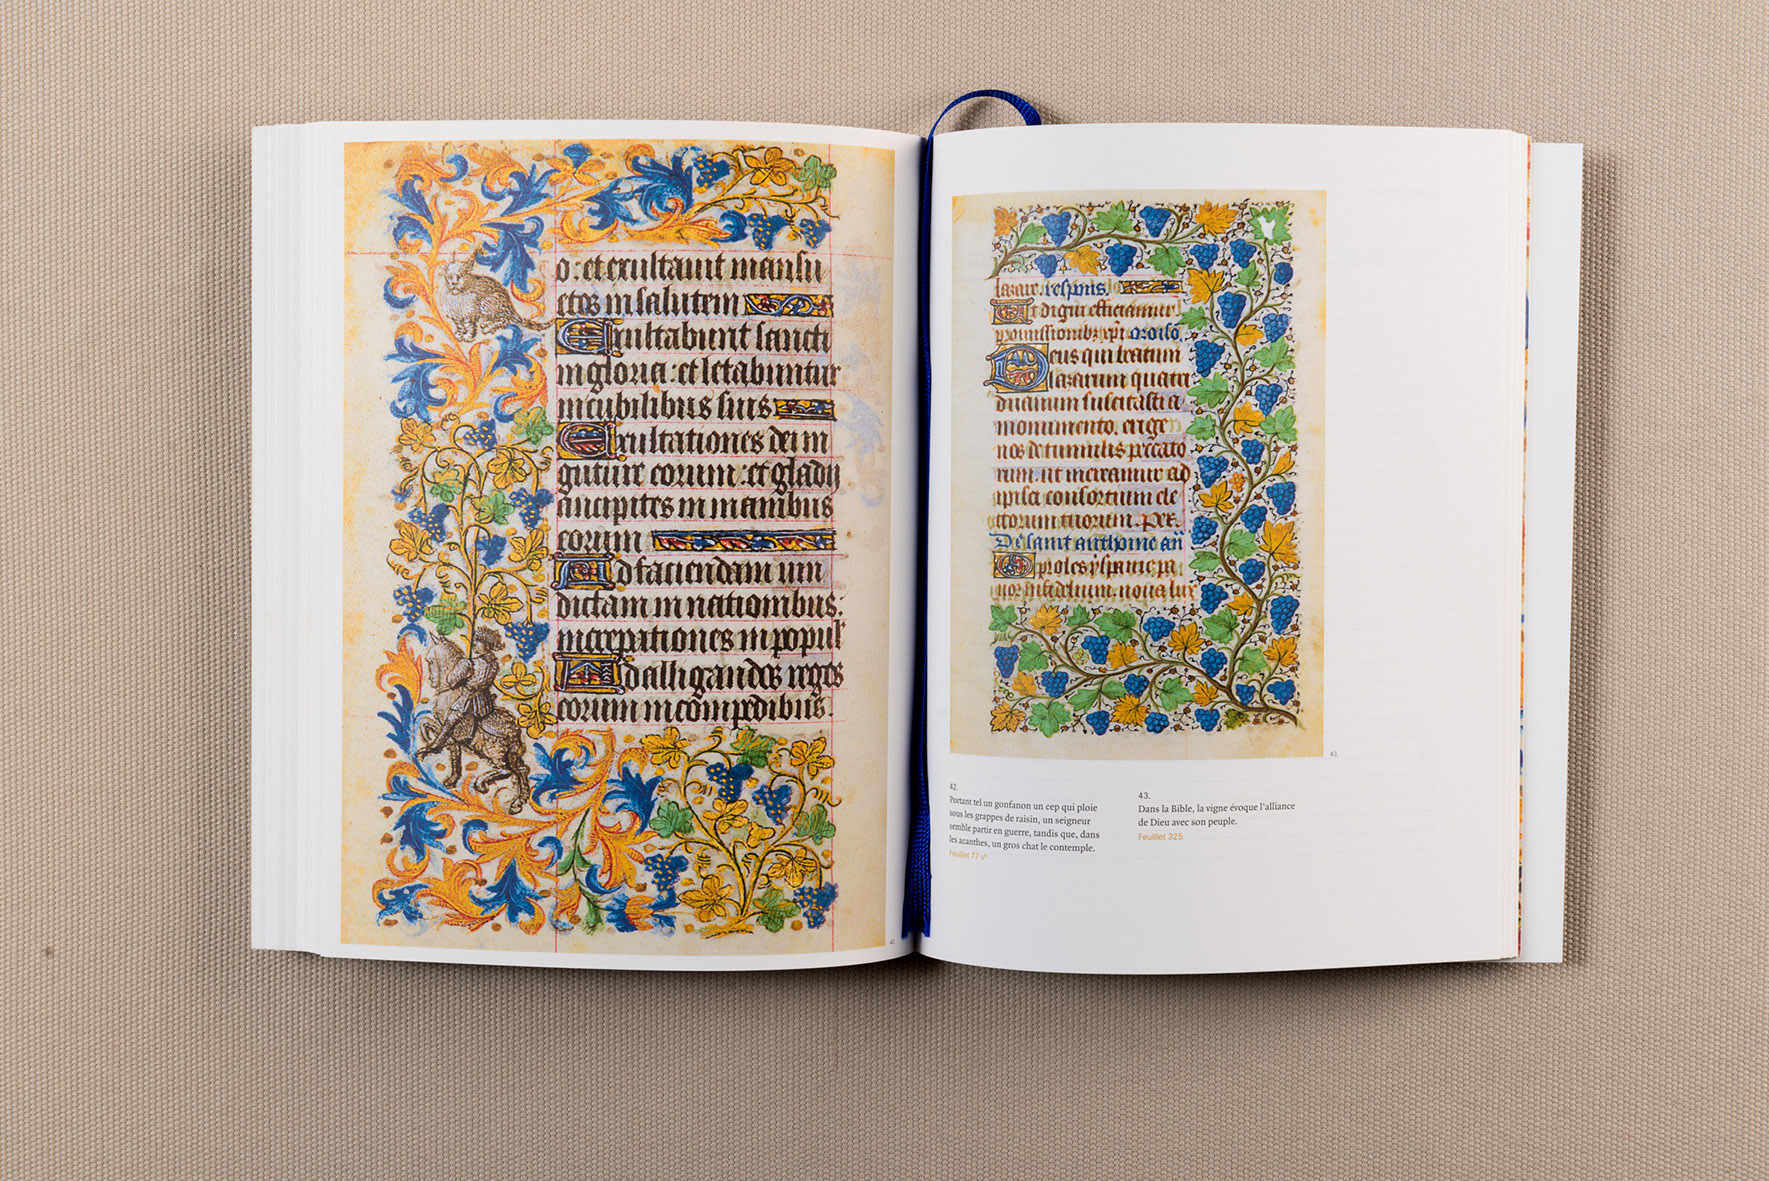 o : et exultavit mansu
etos in salutem
Exultabunt sancti
in gloria : et letabuntur
in cubilibus suis
Exultationes dei in
guture eorum : et gladij
ancipites in manibus
eorum
Ad faciendam vin
dictam in nationibus.
increpationes in popul
Ad alligandos reges
eorum in compedibus
42.
lazare. respons.
Ut digni efficiamur
promissionib; xpi. oroiso
Deus qui beatum
lazarum quatri
duanum suscitasti a
monumento. erige
nos de tumulis peccato
rum. ut mereamur ad
apisci consortium ele
ctorum tuorum. per.
De saint anthoine añ
O proles yspanie pa
vor infidelium. nova lux
43.
42.
Portant tel un gonfanon un cep qui ploie
sous les grappes de raisin, un seigneur
semble partir en guerre, tandis que, dans
les acanthes, un gros chat le contemple.
Feuillet 77 v°
43.
Dans la Bible, la vigne évoque l'alliance
de Dieu avec son peuple.
Feuillet 325